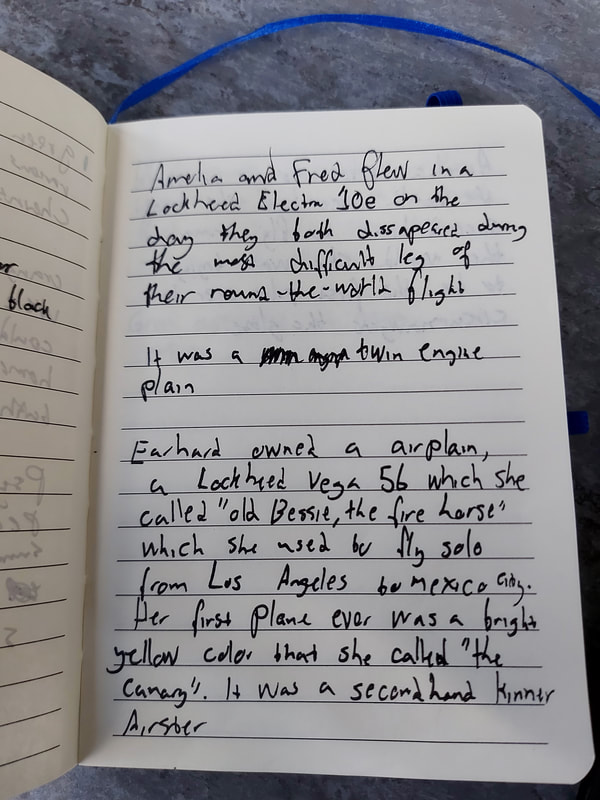 er
black
Amelia and Fred flew in a
Lockheed Electra 10e on the
day they both dissapeared during
the most difficult leg of
their round-the-world flight
It was a twin engine
plain
Earhard owned a airplain,
a Lockheed Vega 5b which she
called "old Bessie, the fire horse"
which she used to fly solo
from Los Angeles to Mexico City.
Her first plane ever was a bright
yellow color that she called "the
Canary". It was a secondhand Kinner
Airster